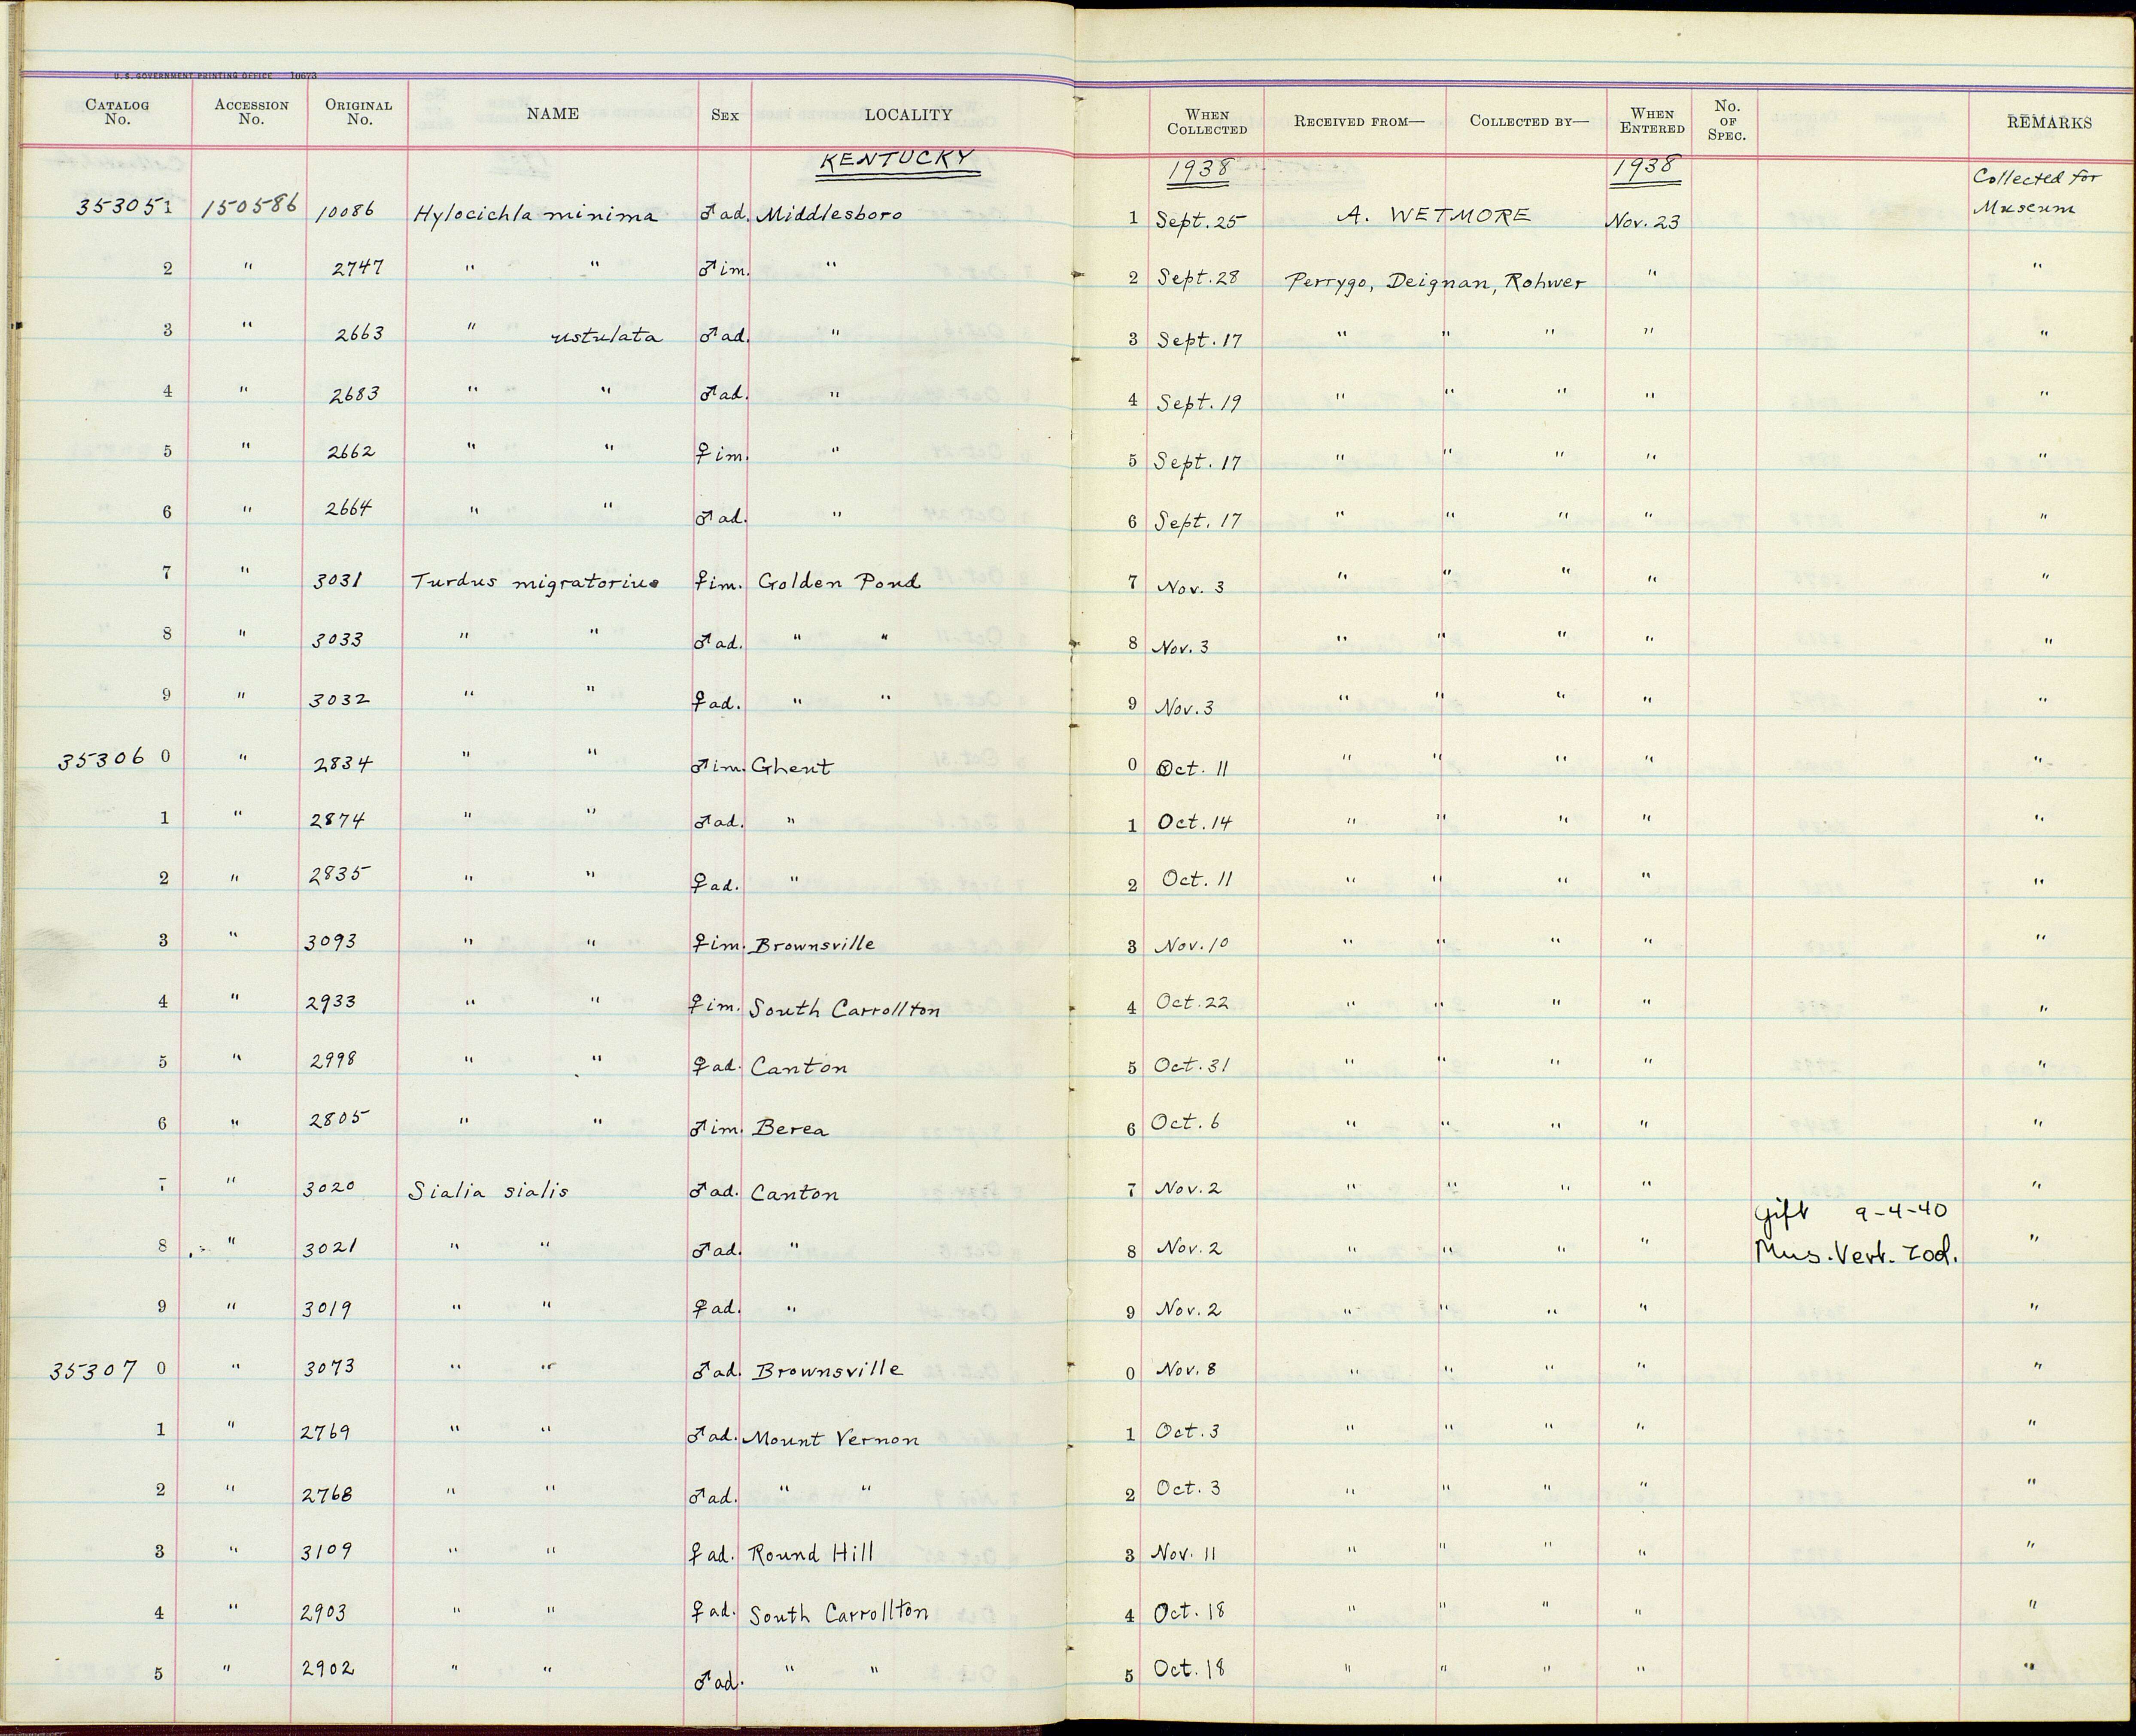 U.S. GOVERNMENT PRINTING OFFICE 10673
CATALOG No. ACCESSION No. ORIGINAL No. NAME SEX LOCALITY WHEN COLLECTED RECEIVED FROM— COLLECTED BY— WHEN ENTERED No. OF SPEC. REMARKS
KENTUCKY 1938 1938
353051 150586 10086 Hylocichla minima ♂ad. Middlesboro 1 Sept. 25 A. WETMORE Nov. 23 Collected for Museum
2 " 2747 " " ♂im. " 2 Sept. 28 Perrygo, Deignan, Rohwer " "
3 " 2663 " ustulata ♂ad. " 3 Sept. 17 " " " " "
4 " 2683 " " ♂ad. " 4 Sept. 19 " " " " "
5 " 2662 " " ♀im. " 5 Sept. 17 " " " " "
6 " 2664 " " ♂ad. " 6 Sept. 17 " " " " "
7 " 3031 Turdus migratorius ♀im. Golden Pond 7 Nov. 3 " " " " "
8 " 3033 " " ♂ad. " " 8 Nov. 3 " " " " "
9 " 3032 " " ♀ad. " " 9 Nov. 3 " " " " "
353060 " 2834 " " ♂im. Ghent 0 Oct. 11 " " " " "
1 " 2874 " " ♂ad. " 1 Oct. 14 " " " " "
2 " 2835 " " ♀ad. " 2 Oct. 11 " " " " "
3 " 3093 " " ♀im. Brownsville 3 Nov. 10 " " " " "
4 " 2933 " " ♀im. South Carrollton 4 Oct. 22 " " " " "
5 " 2998 " " ♀ad. Canton 5 Oct. 31 " " " " "
6 " 2805 " " ♂im. Berea 6 Oct. 6 " " " " "
7 " 3020 Sialia sialis ♂ad. Canton 7 Nov. 2 " " " " "
Gift 9-4-40
8 " 3021 " " ♂ad. " 8 Nov. 2 " " " " Mus. Vert. Zool. "
9 " 3019 " " ♀ad. " 9 Nov. 2 " " " " "
353070 " 3073 " " ♂ad. Brownsville 0 Nov. 8 " " " " "
1 " 2769 " " ♂ad. Mount Vernon 1 Oct. 3 " " " " "
2 " 2768 " " ♂ad. " " 2 Oct. 3 " " " " "
3 " 3109 " " ♀ad. Round Hill 3 Nov. 11 " " " " "
4 " 2903 " " ♀ad. South Carrollton 4 Oct. 18 " " " " "
5 " 2902 " " ♂ad. " " 5 Oct. 18 " " " " "